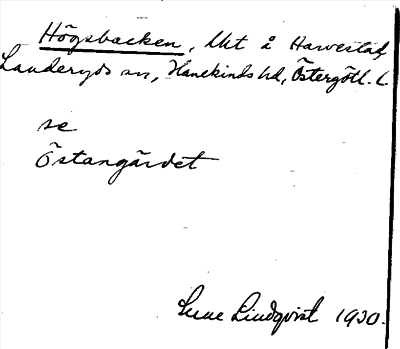 Högsbacken, lkt å Harvestad,
Landeryds sn, Hanekinds hd, Östergötl. l.
se
Östangärdet
Sune Lindqvist 1920.